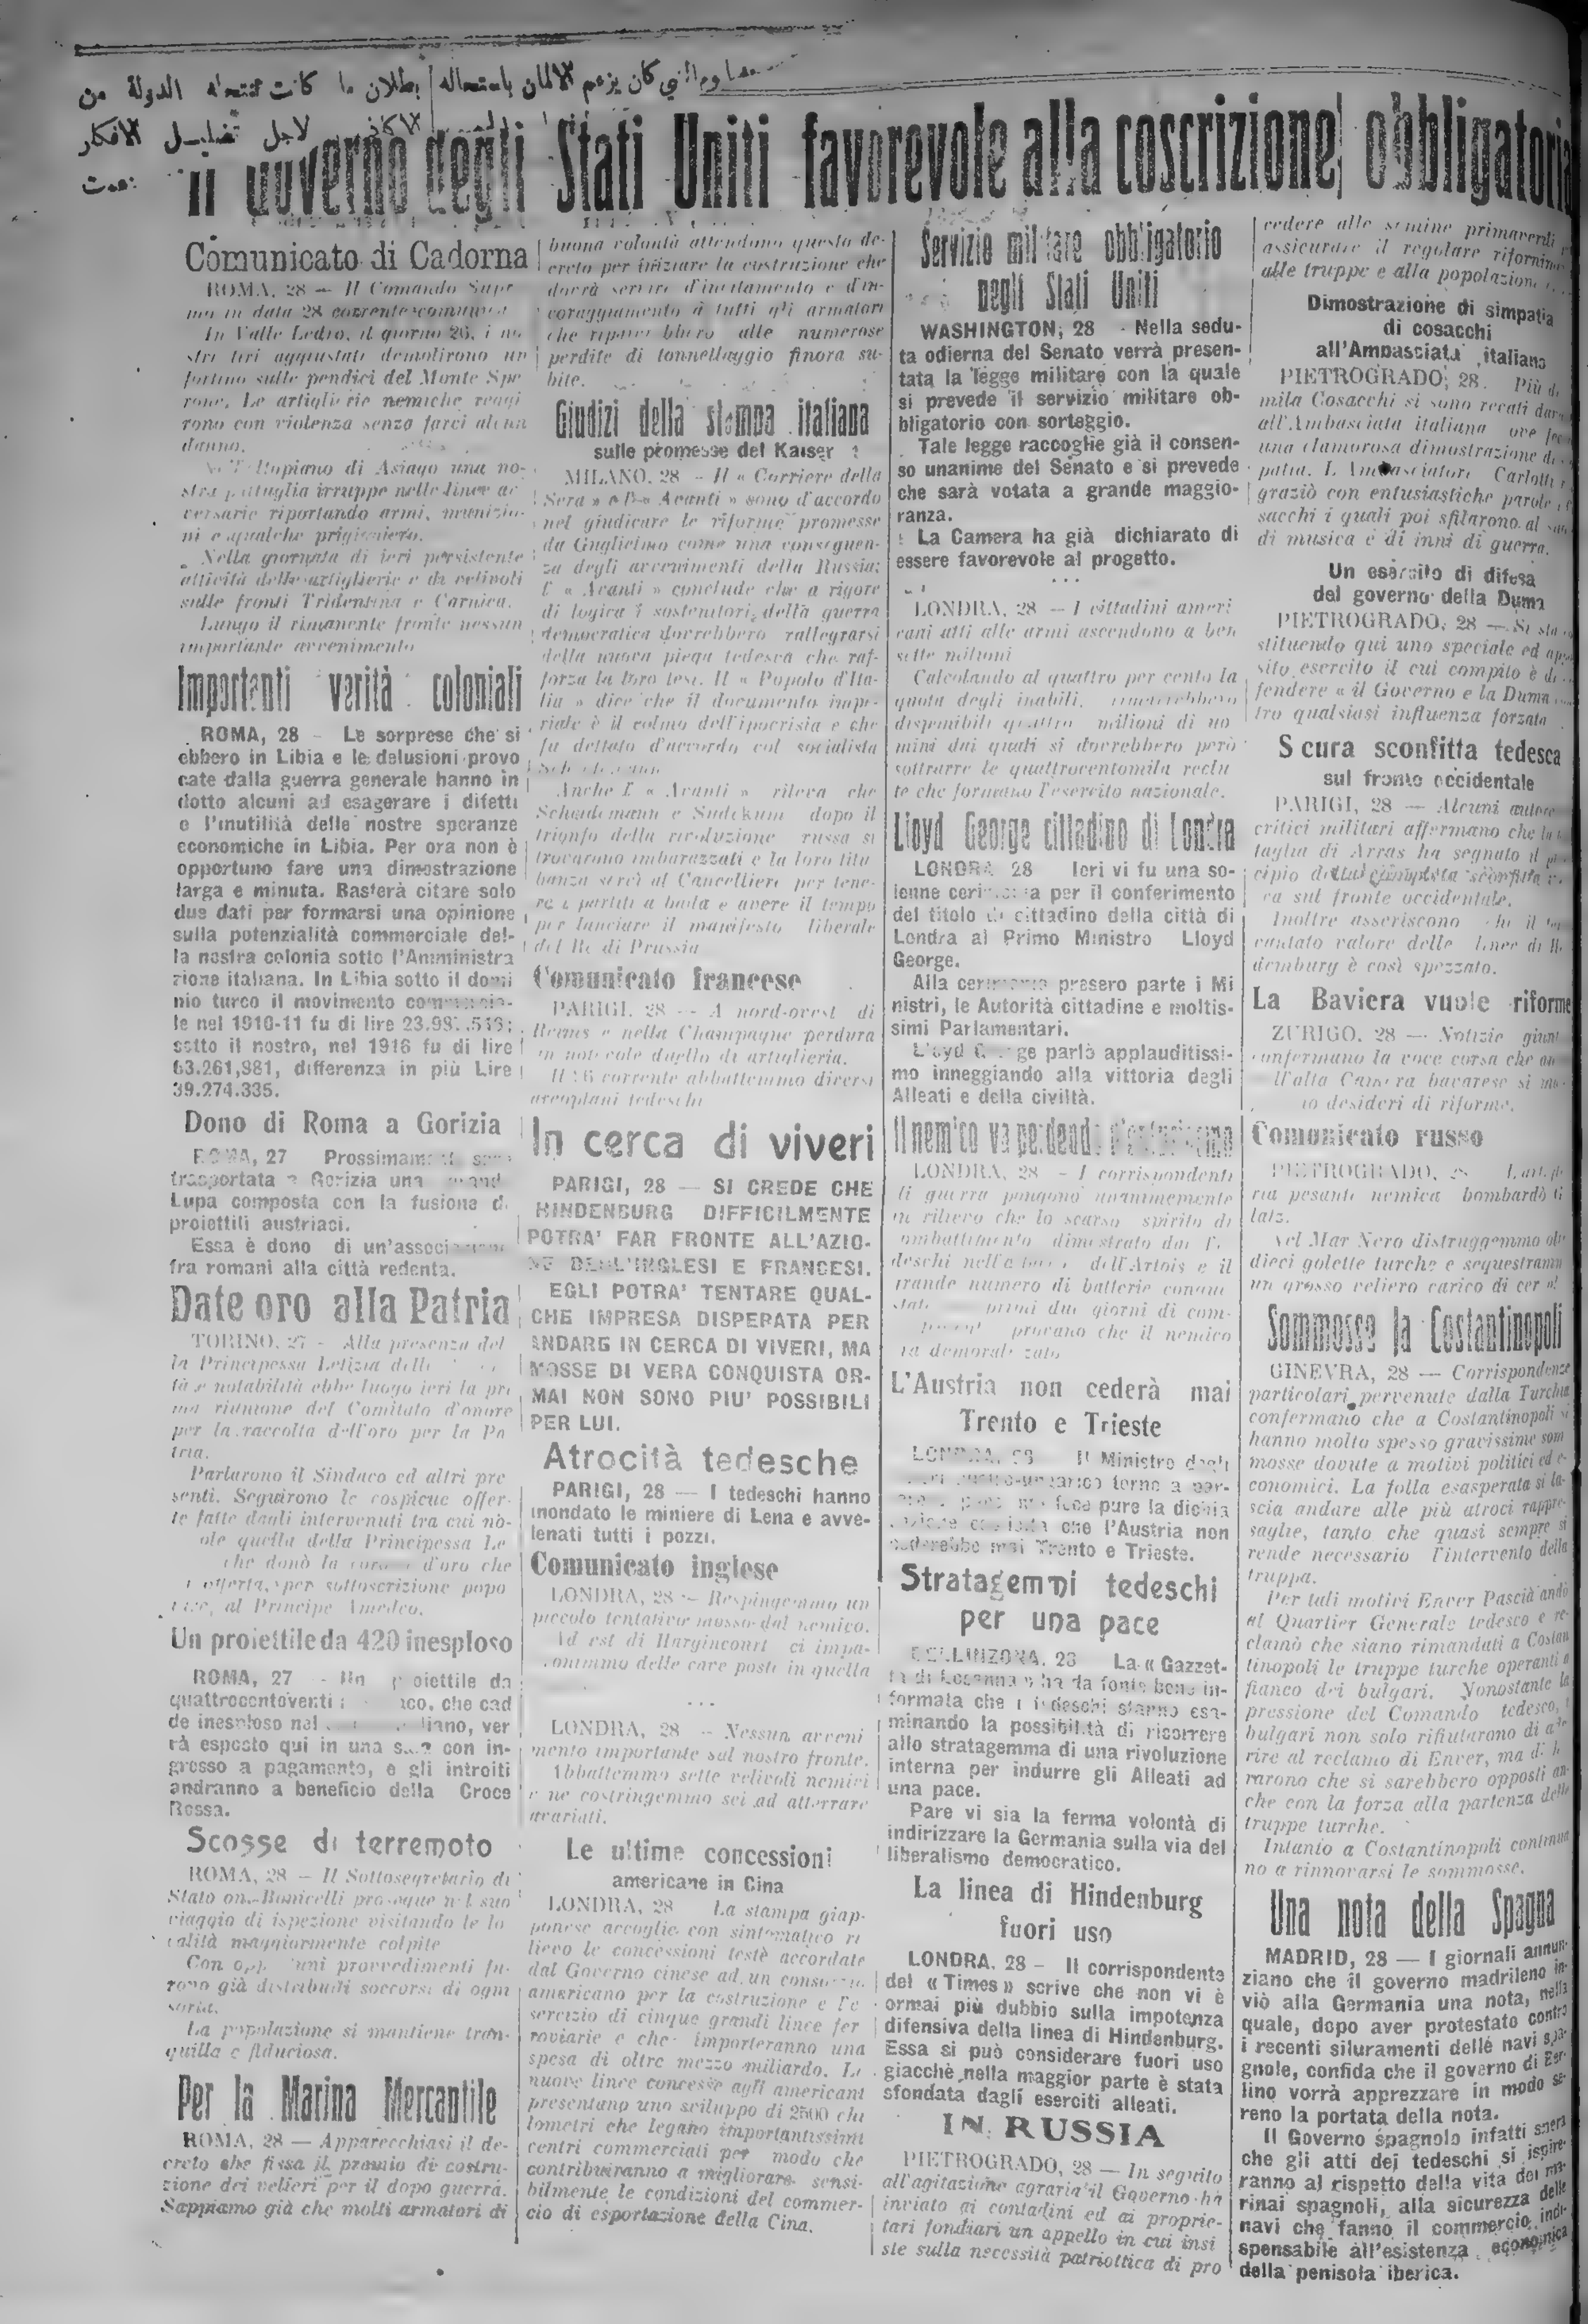 كان يزعم الالمان باستحاله
بطلان ما كانت تنتحله الدولة من
لاجل تضليل الافكار
Il Governo degli Stati Uniti favorevole alla coscrizione obbligatoria
Comunicato di Cadorna
ROMA, 28 — Il Comando Supr
mo in data 28 corrente comunica
In Valle Ledro, il giorno 26, i no
stri tiri aggiustati demolirono un
fortino sulle pendici del Monte Spe
rone. Le artiglierie nemiche reagi
rono con violenza senza farci alcun
danno.
Nell'Altopiano di Asiago una no-
stra pattuglia irruppe nelle linee av
versarie riportando armi, munizio-
ni e qualche prigioniero.
Nella giornata di ieri persistente
attività delle artiglierie e di velivoli
sulle fronti Tridentina e Carnica.
Lungo il rimanente fronte nessun
importante avvenimento
Importanti verità coloniali
ROMA, 28 - Le sorprese che si
ebbero in Libia e le delusioni provo
cate dalla guerra generale hanno in
dotto alcuni ad esagerare i difetti
e l'inutilità delle nostre speranze
economiche in Libia. Per ora non è
opportuno fare una dimostrazione
larga e minuta. Basterà citare solo
due dati per formarsi una opinione
sulla potenzialità commerciale del-
la nostra colonia sotto l'Amministra
zione italiana. In Libia sotto il domi
nio turco il movimento commercia-
le nel 1910-11 fu di lire
sotto il nostro, nel 1916 fu di lire
63.261,981, differenza in più Lire
39.274.335.
Dono di Roma a Gorizia
ROMA, 27 Prossimamente sarà
trasportata a Gorizia una grande
Lupa composta con la fusione di
proiettili austriaci.
Essa è dono di un'associazione
fra romani alla città redenta.
Date oro alla Patria
TORINO, 27 - Alla presenza del
la Principessa Letizia delle
tà e notabilità ebbe luogo ieri la pri
ma riunione del Comitato d'onore
per la raccolta dell'oro per la Pa
tria.
Parlarono il Sindaco ed altri pre
senti. Seguirono le cospicue offer-
te fatte dagli intervenuti tra cui no-
ole quella della Principessa Le
che donò la corona d'oro che
offerta, per sottoscrizione popo
lare, al Principe Amedeo.
Un proiettile da 420 inesploso
ROMA, 27 - Un proiettile da
quattrocentoventi austriaco, che cad
de inesploso nel italiano, ver
rà esposto qui in una sala con in-
gresso a pagamento, e gli introiti
andranno a beneficio della Croce
Rossa.
Scosse di terremoto
ROMA, 28 — Il Sottosegretario di
Stato on. Bonicelli prosegue nel suo
viaggio di ispezione visitando le lo
calità maggiormente colpite
Con opportuni provvedimenti fu-
rono già distribuiti soccorsi di ogni
sorta.
La popolazione si mantiene tran-
quilla e fiduciosa.
Per la Marina Mercantile
ROMA, 28 — Apparecchiasi il de-
creto che fissa il premio di costru-
zione dei velieri per il dopo guerra.
Sappiamo già che molti armatori di
buona volontà attendono questo de-
creto per iniziare la costruzione che
dovrà servire d'incitamento e d'in-
coraggiamento a tutti gli armatori
che riparerebbero alle numerose
perdite di tonnellaggio finora su-
bite.
Giudizi della stampa italiana
sulle promesse del Kaiser
MILANO, 28 - Il « Corriere della
Sera » e l'« Avanti » sono d'accordo
nel giudicare le riforme promesse
da Guglielmo come una conseguen-
za degli avvenimenti della Russia;
l' « Avanti » conclude che a rigore
di logica i sostenitori della guerra
democratica dovrebbero rallegrarsi
della nuova piega tedesca che raf-
forza la loro tesi. Il « Popolo d'Ita-
lia » dice che il documento impe-
riale è il colmo dell'ipocrisia e che
fu dettato d'accordo col socialista
Scheidemann
Anche l' « Avanti » rileva che
Scheidemann e Sudekum dopo il
trionfo della rivoluzione russa si
trovarono imbarazzati e la loro titu
banza servì al Cancelliere per tene-
re i partiti a bada e avere il tempo
per lanciare il manifesto liberale
del Re di Prussia
Comunicato francese
PARIGI, 28 -- A nord-ovest di
Reims e nella Champagne perdura
un notevole duello di artiglieria.
Il 26 corrente abbattemmo diversi
aeroplani tedeschi
In cerca di viveri
PARIGI, 28 — SI CREDE CHE
HINDENBURG DIFFICILMENTE
POTRA' FAR FRONTE ALL'AZIO-
NE DEGL'INGLESI E FRANCESI.
EGLI POTRA' TENTARE QUAL-
CHE IMPRESA DISPERATA PER
ANDARE IN CERCA DI VIVERI, MA
MOSSE DI VERA CONQUISTA OR-
MAI NON SONO PIU' POSSIBILI
PER LUI.
Atrocità tedesche
PARIGI, 28 — I tedeschi hanno
inondato le miniere di Lena e avve-
lenati tutti i pozzi.
Comunicato inglese
LONDRA, 28 - Respingemmo un
piccolo tentativo mosso dal nemico.
Ad est di Hargincourt ci impa-
dronimmo delle cave poste in quella
...
LONDRA, 28 - Nessun avveni
mento importante sul nostro fronte.
Abbattemmo sette velivoli nemici
e ne costringemmo sei ad atterrare
avariati.
Le ultime concessioni
americane in Cina
LONDRA, 28 La stampa giap-
ponese accoglie con sintomatico ri
lievo le concessioni testè accordate
dal Governo cinese ad un consorzio
americano per la costruzione e l'e
sercizio di cinque grandi linee fer
roviarie e che importeranno una
spesa di oltre mezzo miliardo. Le
nuove linee concesse agli americani
presentano uno sviluppo di 2500 chi
lometri che legano importantissimi
centri commerciali per modo che
contribuiranno a migliorare sensi-
bilmente le condizioni del commer-
cio di esportazione della Cina.
Servizio militare obbligatorio
negli Stati Uniti
WASHINGTON, 28 - Nella sedu-
ta odierna del Senato verrà presen-
tata la legge militare con la quale
si prevede il servizio militare ob-
bligatorio con sorteggio.
Tale legge raccoglie già il consen-
so unanime del Senato e si prevede
che sarà votata a grande maggio-
ranza.
La Camera ha già dichiarato di
essere favorevole al progetto.
...
LONDRA, 28 — I cittadini ameri
cani atti alle armi ascendono a ben
sette milioni
Calcolando al quattro per cento la
quota degli inabili, rimarrebbero
disponibili quattro milioni di uo
mini dai quali si dovrebbero però
sottrarre le quattrocentomila reclu
te che formano l'esercito nazionale.
Lloyd George cittadino di Londra
LONDRA 28 Ieri vi fu una so-
lenne cerimonia per il conferimento
del titolo di cittadino della città di
Londra al Primo Ministro Lloyd
George.
Alla cerimonia presero parte i Mi
nistri, le Autorità cittadine e moltis-
simi Parlamentari.
Lloyd George parlò applauditissi-
mo inneggiando alla vittoria degli
Alleati e della civiltà.
Il nemico va perdendo
LONDRA, 28 - I corrispondenti
di guerra pongono unanimemente
in rilievo che lo scarso spirito di
combattimento dimostrato dai Te
deschi nell'azione dell'Artois e il
grande numero di batterie conqui
state primi due giorni di com-
provano che il nemico
va demoralizzato
L'Austria non cederà mai
Trento e Trieste
LONDRA, 28 Il Ministro degli
austro-ungarico torna a par-
fece pure la dichia
razione che l'Austria non
cederebbe mai Trento e Trieste.
Stratagemmi tedeschi
per una pace
BELLINZONA, 28 La « Gazzet-
ta di Losanna » ha da fonte bene in-
formata che i tedeschi stanno esa-
minando la possibilità di ricorrere
allo stratagemma di una rivoluzione
interna per indurre gli Alleati ad
una pace.
Pare vi sia la ferma volontà di
indirizzare la Germania sulla via del
liberalismo democratico.
La linea di Hindenburg
fuori uso
LONDRA, 28 - Il corrispondente
del « Times » scrive che non vi è
ormai più dubbio sulla impotenza
difensiva della linea di Hindenburg.
Essa si può considerare fuori uso
giacchè nella maggior parte è stata
sfondata dagli eserciti alleati.
IN RUSSIA
PIETROGRADO, 28 — In seguito
all'agitazione agraria il Governo ha
inviato ai contadini ed ai proprie-
tari fondiari un appello in cui insi
ste sulla necessità patriottica di pro
cedere alle semine primaverili
assicurare il regolare rifornim
alle truppe e alla popolazione
Dimostrazione di simpatia
di cosacchi
all'Ambasciata italiana
PIETROGRADO, 28. Più di
mila Cosacchi si sono recati dav
all'Ambasciata italiana ove fec
una clamorosa dimostrazione di
patia. L'Ambasciatore Carlotti
graziò con entusiastiche parole
sacchi i quali poi sfilarono al suo
di musica e di inni di guerra.
Un esercito di difesa
del governo della Duma
PIETROGRADO, 28 — Si sta
stituendo qui uno speciale ed app
sito esercito il cui compito è di
fendere « il Governo e la Duma
tro qualsiasi influenza forzata
Sicura sconfitta tedesca
sul fronte occidentale
PARIGI, 28 — Alcuni autore
critici militari affermano che la
taglia di Arras ha segnato il
cipio della completa sconfitta
ca sul fronte occidentale.
Inoltre asseriscono che il
cantato valore delle linee di H
demburg è così spezzato.
La Baviera vuole riforme
ZURIGO, 28 — Notizie giunt
confermano la voce corsa che an
all'alta Camera bavarese si
no desideri di riforme.
Comunicato russo
PIETROGRADO, 28 L'artiglie
ria pesante nemica bombardò
latz.
Nel Mar Nero distruggemmo olt
dieci golette turche e sequestramm
un grosso veliero carico di cereali
Sommosse a Costantinopoli
GINEVRA, 28 — Corrispondenze
particolari pervenute dalla Turchia
confermano che a Costantinopoli si
hanno molto spesso gravissime som
mosse dovute a motivi politici ed e-
conomici. La folla esasperata si la-
scia andare alle più atroci rappre-
saglie, tanto che quasi sempre si
rende necessario l'intervento della
truppa.
Per tali motivi Enver Pascià andò
al Quartier Generale tedesco e re-
clamò che siano rimandati a Costan
tinopoli le truppe turche operanti a
fianco dei bulgari. Nonostante la
pressione del Comando tedesco, i
bulgari non solo rifiutarono di ade
rire al reclamo di Enver, ma dichia
rarono che si sarebbero opposti an-
che con la forza alla partenza delle
truppe turche.
Intanto a Costantinopoli continua
no a rinnovarsi le sommosse.
Una nota della Spagna
MADRID, 28 — I giornali annun-
ziano che il governo madrileno in-
viò alla Germania una nota, nella
quale, dopo aver protestato contro
i recenti siluramenti delle navi spa-
gnole, confida che il governo di Ber-
lino vorrà apprezzare in modo se-
reno la portata della nota.
Il Governo spagnolo infatti spera
che gli atti dei tedeschi si ispire-
ranno al rispetto della vita dei ma-
rinai spagnoli, alla sicurezza delle
navi che fanno il commercio indi-
spensabile all'esistenza economica
della penisola iberica.